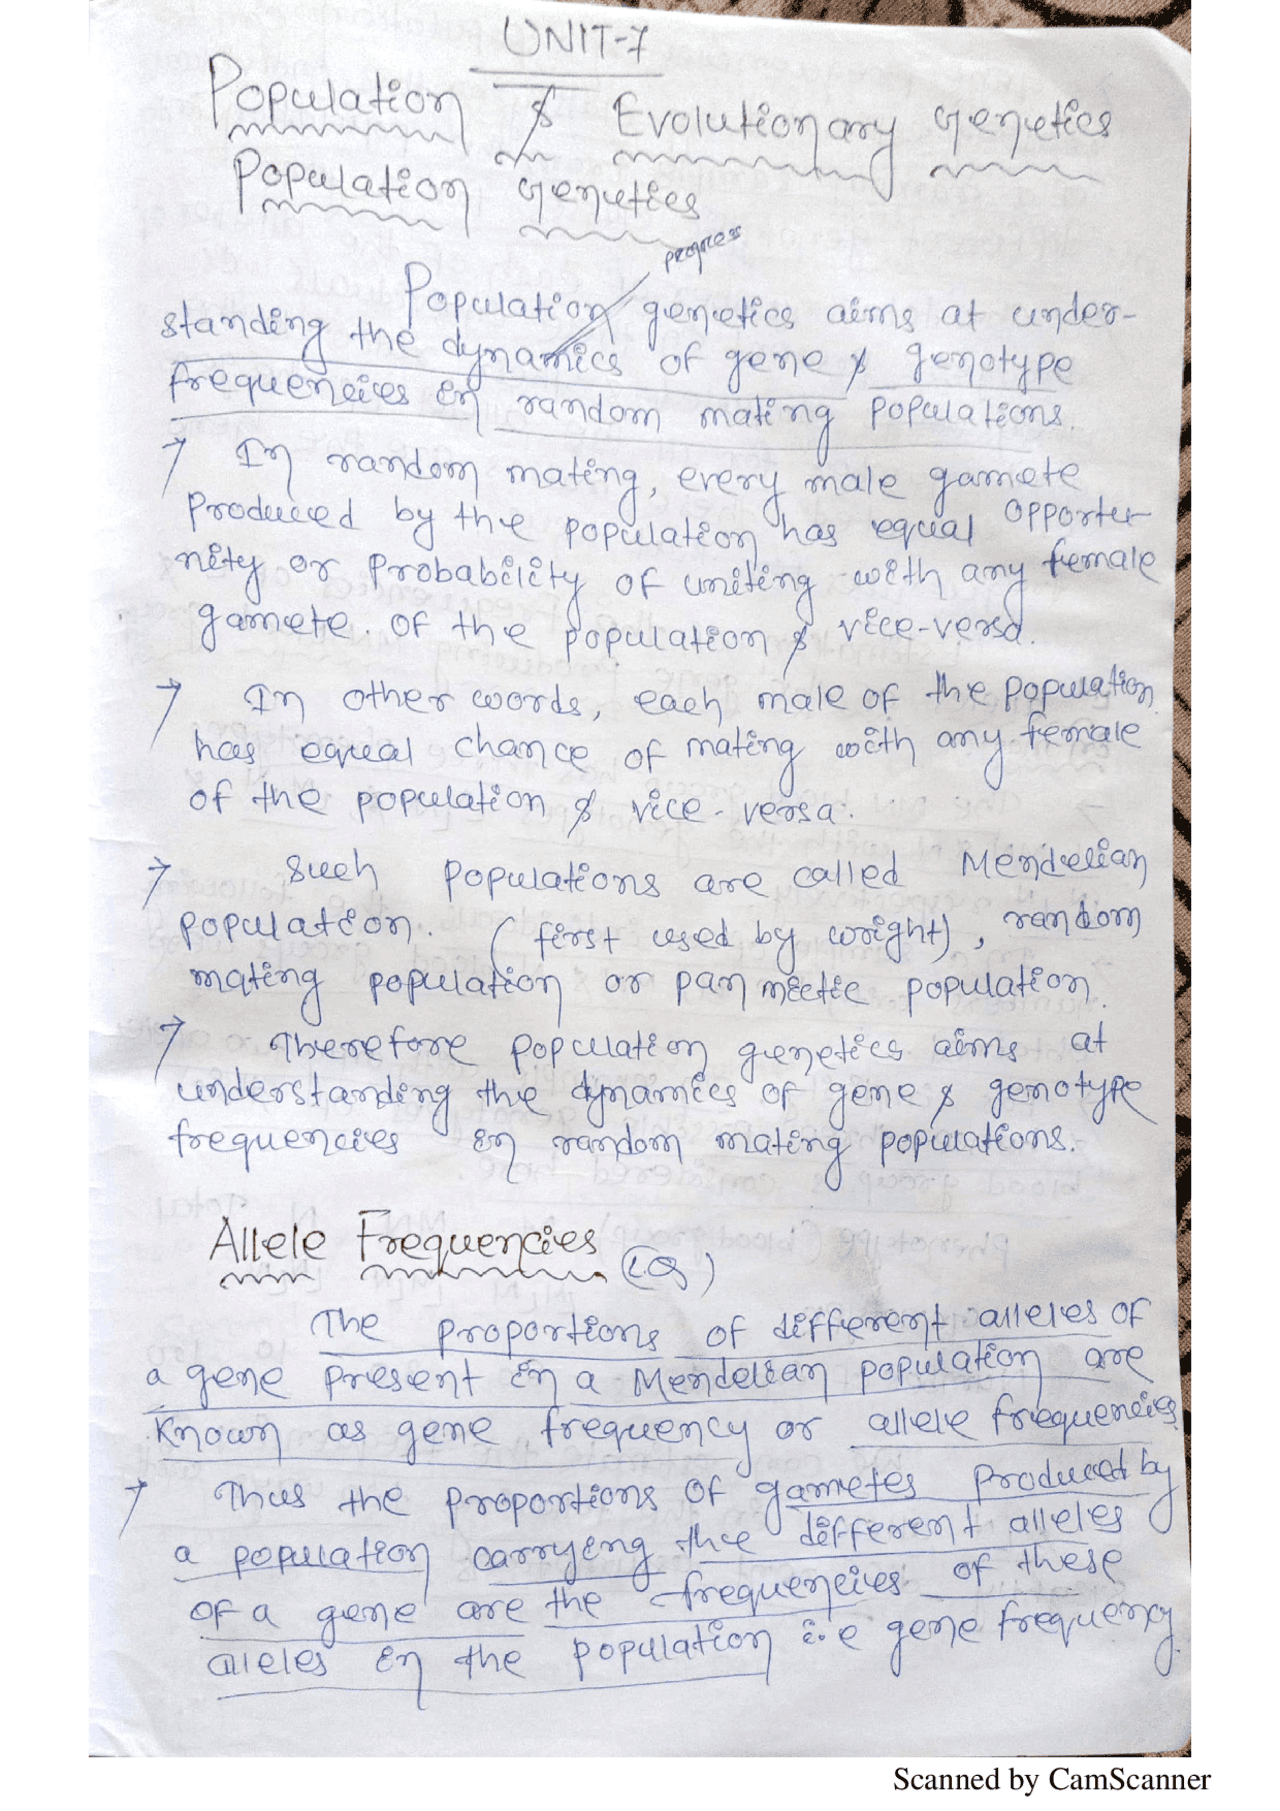 UNIT-7
Population & Evolutionary Genetics
Population Genetics
progress
Population genetics aims at under-
standing the dynamics of gene & genotype
frequencies in random mating populations.
→ In random mating, every male gamete
Produced by the population has equal opportu-
nity or Probability of uniting with any female
gamete. of the population & vice-versa.
→ In other words, each male of the population
has equal chance of mating with any female
of the population & vice-versa.
→ Such populations are called Mendelian
population. (first used by wright), random
mating population or panmictic population.
→ Therefore population genetics aims at
understanding the dynamics of gene &  genotype
frequencies in random mating populations.
Allele Frequencies (LQ)
The proportions of different alleles of
a gene present in a Mendelian population are
known as gene frequency or allele frequencies
→ Thus the proportions of gametes produced by
a population carrying the different alleles
of a gene are the frequencies of these
alleles in the population i.e gene frequency
Scanned by CamScanner